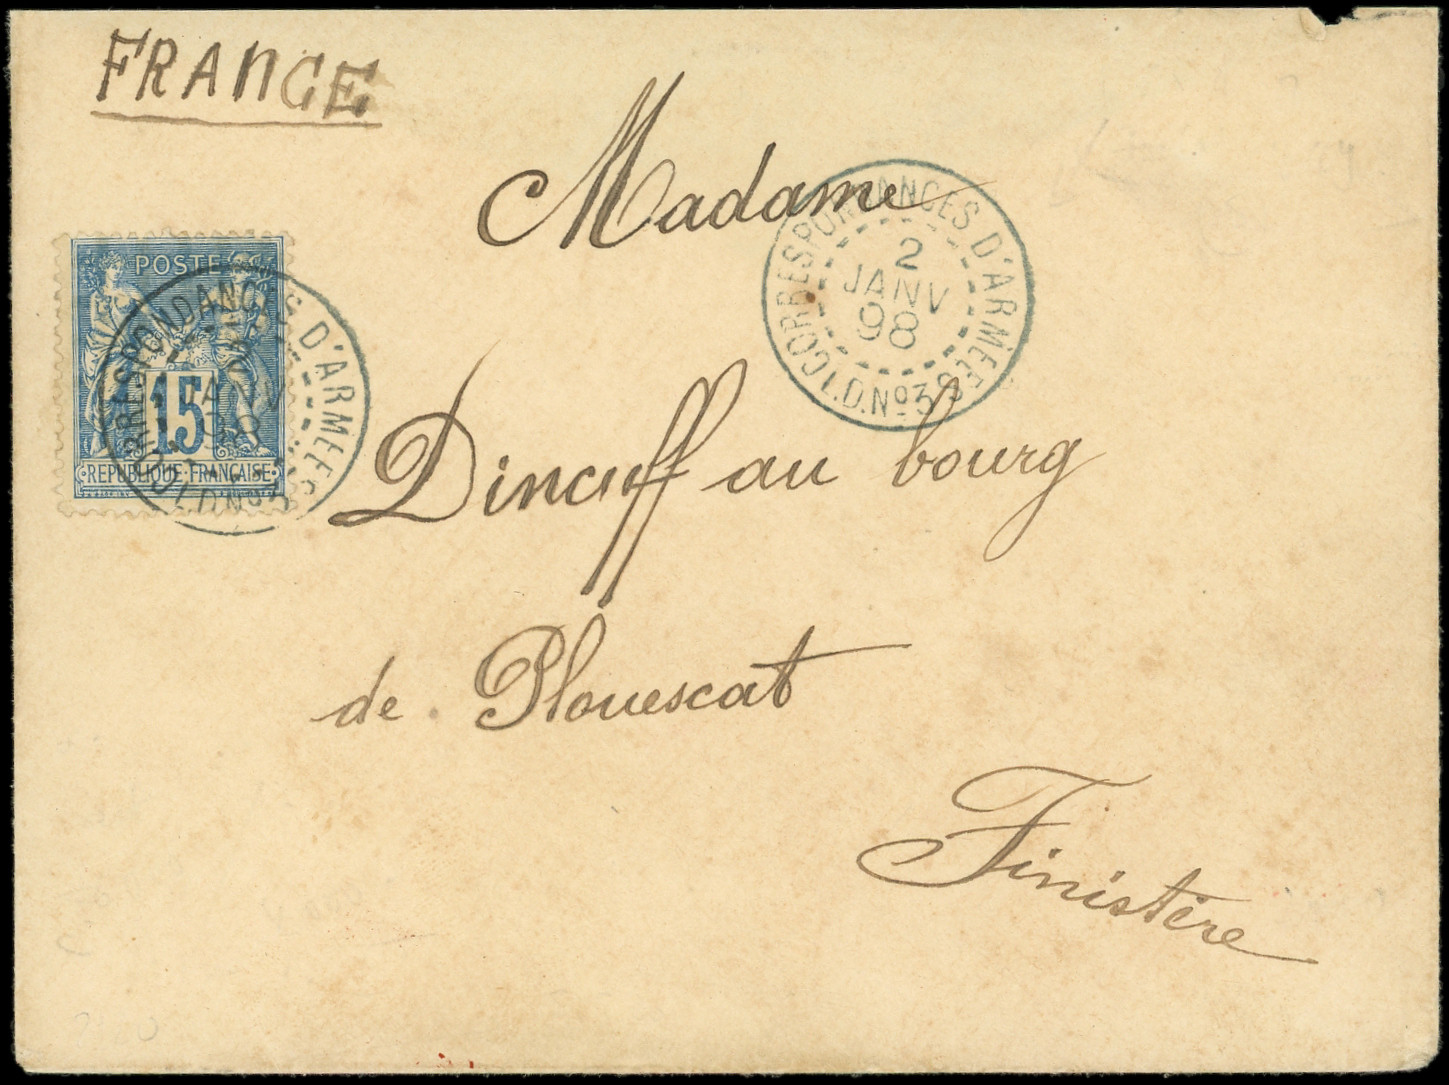 FRANCE
Madame
CORRESPONDANCES D'ARMEES
2
JANV
98
L.D.Nº3
POSTE
15
REPUBLIQUE FRANÇAISE
CORRESPONDANCES D'ARMEES
JANV
Dincuff au bourg
de Plouescat
Finistère